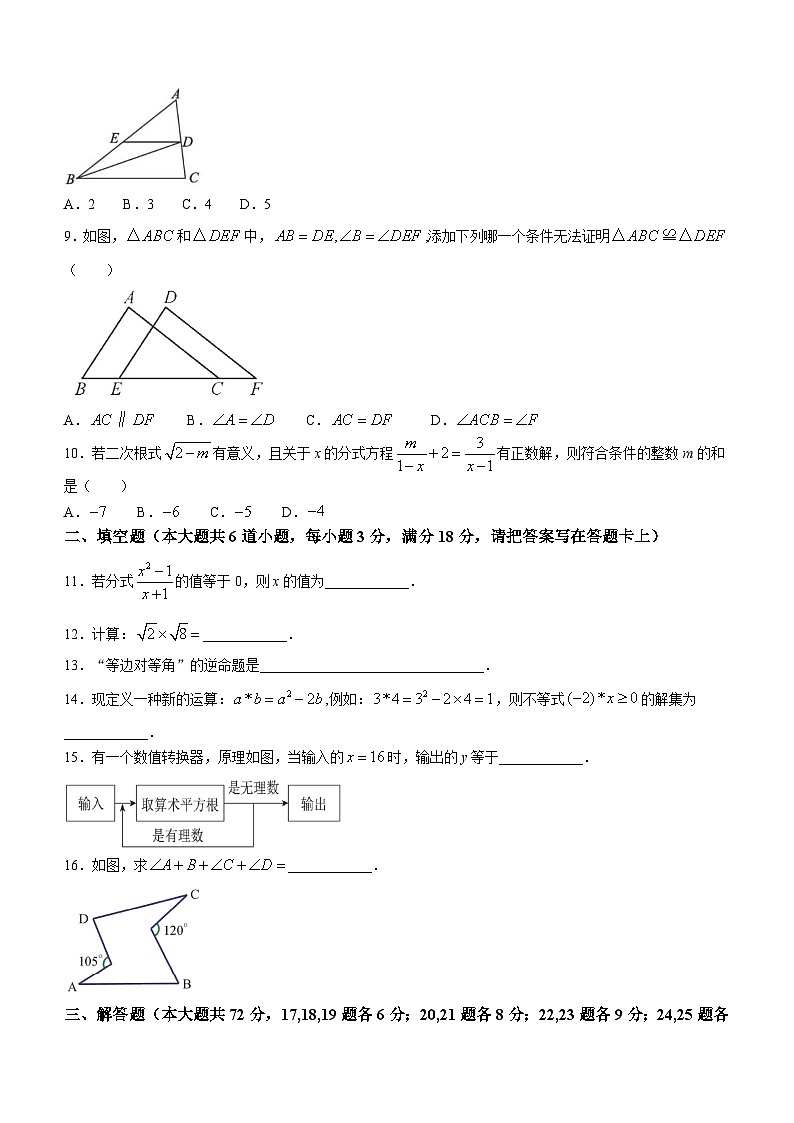 A
E D
B C
A.2 B.3 C.4 D.5
9.如图,△ABC和△DEF中, AB = DE,∠B = ∠DEF ,添加下列哪一个条件无法证明△ABC≌△DEF
( )
A D
B E C F
A. AC∥DF B.∠A = ∠D C. AC = DF D.∠ACB = ∠F
10.若二次根式√(2−m)有意义,且关于x的分式方程 m/(1−x) + 2 = 3/(x−1) 有正数解,则符合条件的整数m的和
是( )
A.−7 B.−6 C.−5 D.−4
二、填空题(本大题共6道小题,每小题3分,满分18分,请把答案写在答题卡上)
11.若分式 (x²−1)/(x+1) 的值等于0,则x的值为____________.
12.计算:√2×√8 = ____________.
13.“等边对等角”的逆命题是________________________________.
14.现定义一种新的运算:a*b = a²−2b,例如:3*4 = 3²−2×4 = 1,则不等式(−2)*x ≥ 0的解集为
____________.
15.有一个数值转换器,原理如图,当输入的x = 16时,输出的y等于____________.
是无理数
输入 取算术平方根 输出
是有理数
16.如图,求∠A+B+∠C+∠D = ____________.
C
D
120°
105°
A B
三、解答题(本大题共72分,17,18,19题各6分;20,21题各8分;22,23题各9分;24,25题各